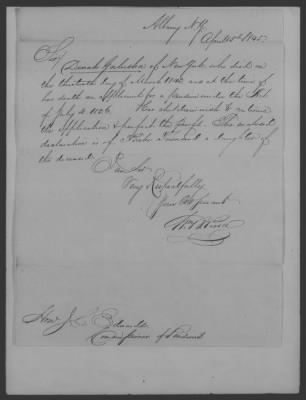 Albany N.Y.
April 15th 1845
Sir
Dinah Galusha of New York who died on
the thirtieth day of March 1842 and at the time of
her death an applicant for a Pension under the Act
of July 4. 1836. Her children wish to renew
the application & perfect the proofs. The enclosed
declaration is of a daughter of
the deceased.
I am Sir
Very Respectfully
Your Obt Servant
Hon J. L. Edwards
Commissioner of Pensions